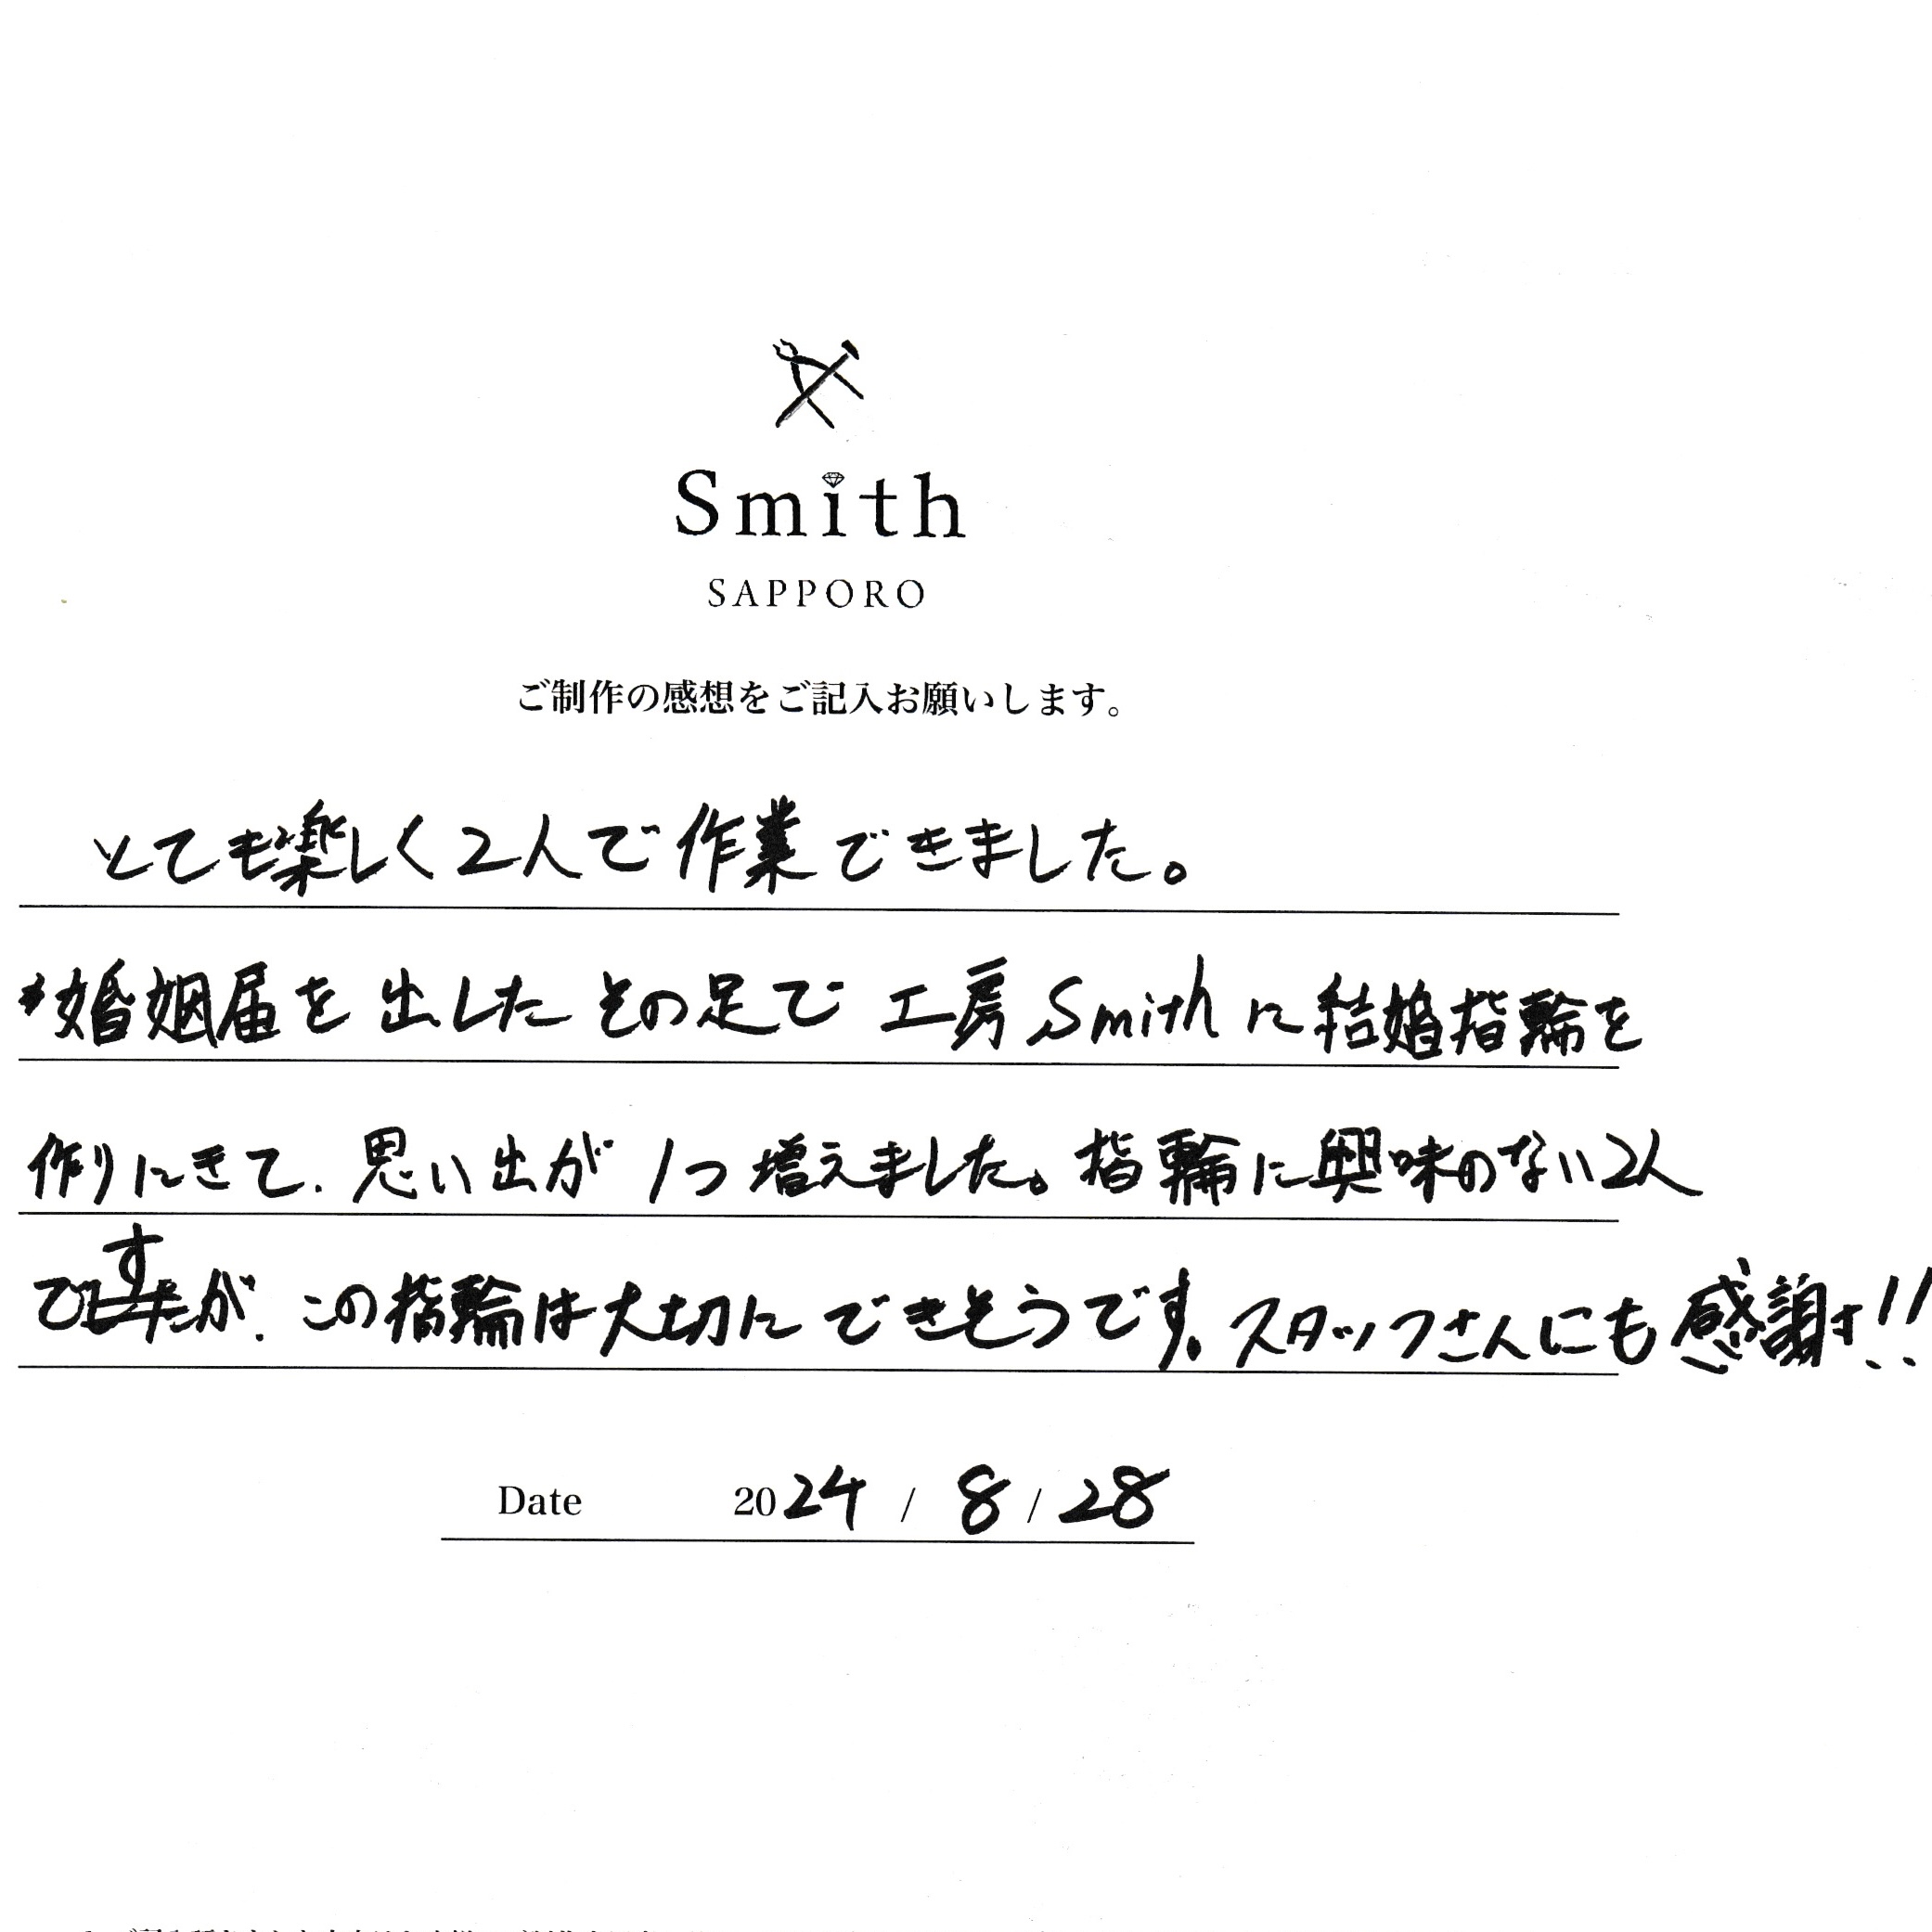 Smith
SAPPORO
ご制作の感想をご記入お願いします。
とても楽しく2人で作業できました。
婚姻届を出したその足で工房Smithに結婚指輪を
作りにきて、思い出が1つ増えました。指輪に興味のない2人
ですが、この指輪は大切にできそうです。スタッフさんにも感謝です!!
Date 2024 / 8 / 28